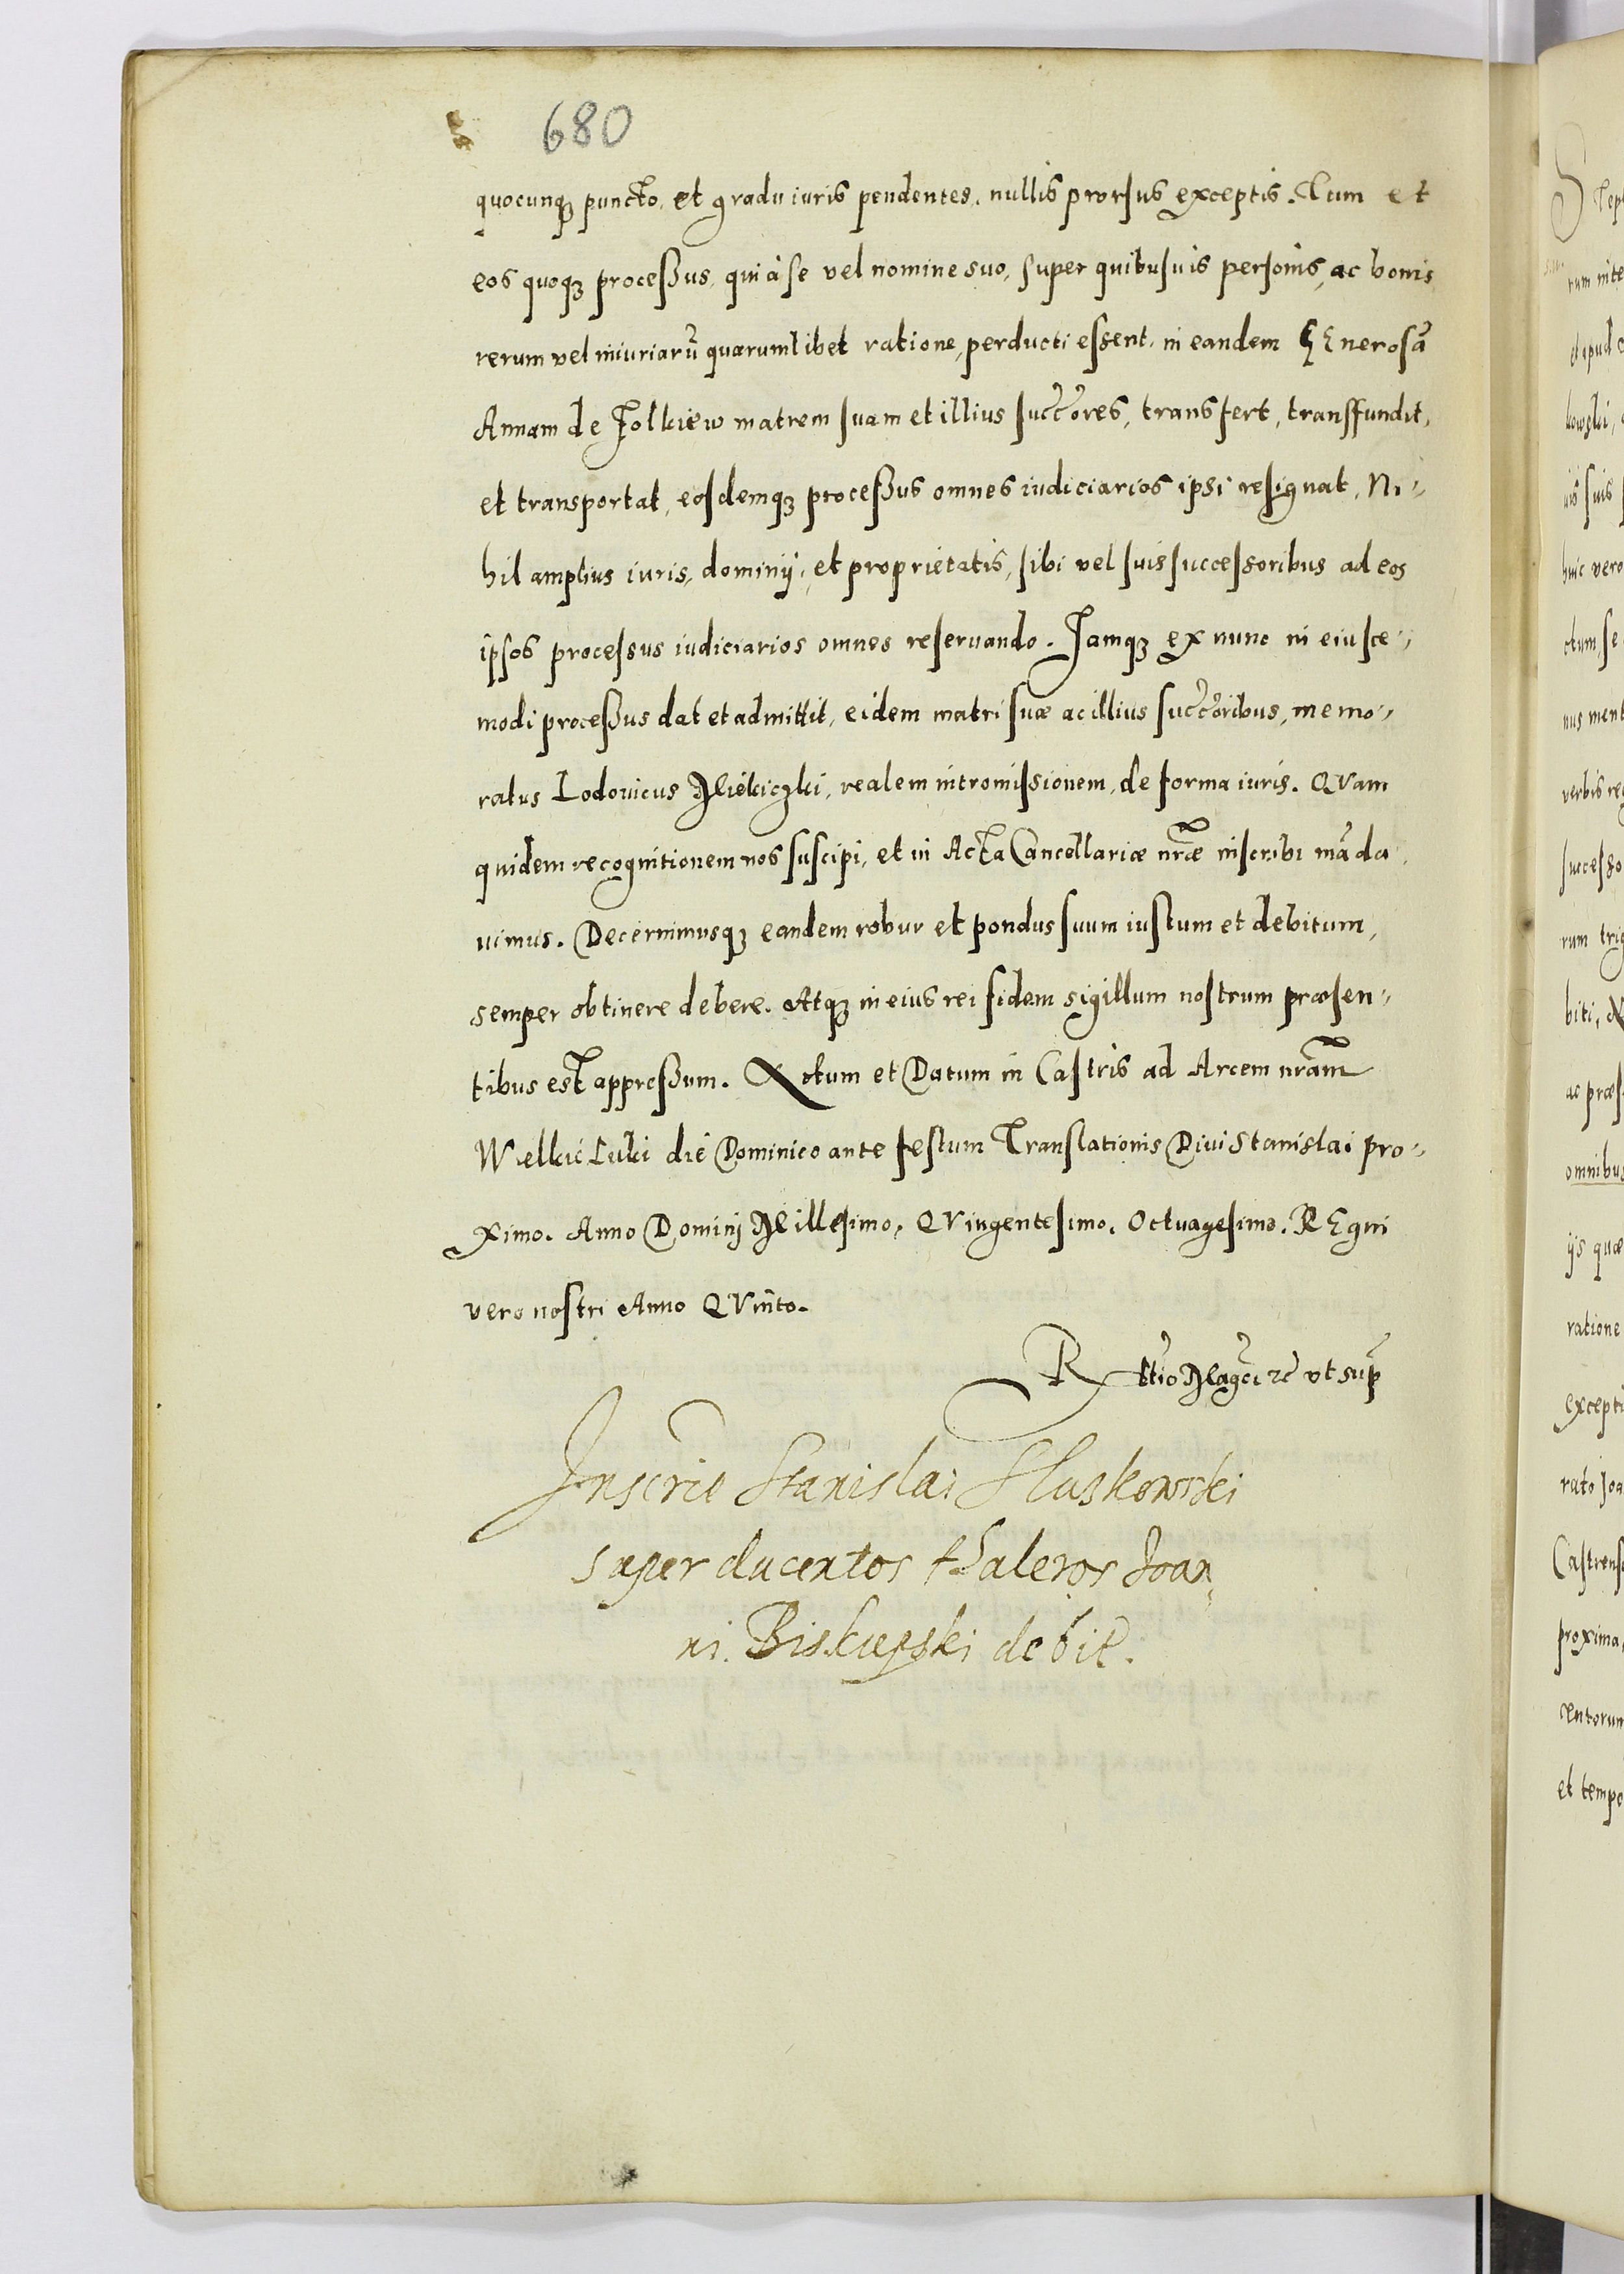 680
quocunqȝ puncto, et gradu iuris pendentes, nullis prorsus exceptis. Cum et
eos quoqȝ processus, qui à se vel nomine suo, super quibusuis personis, ac bonis
rerum vel iniuriarũ quarumlibet ratione, perducti essent, in eandem GEnerosã
Annam de Jolkiew matrem suam et illius succores, transfert, transffundit,
et transportat, eosdemqȝ processus omnes iudiciarios ipsi resignat, Ni-
hil amplius iuris, dominij, et proprietatis, sibi vel suis successoribus ad eos
ipsos processus iudiciarios omnes reseruando. Jamqȝ ex nunc in eiusce-
modi processus dat et admittit, eidem matri suæ ac illius succoribus, memo-
ratus Lodouicus realem intromissionem, de forma iuris. QVam
quidem recognitionem nos suscipi, et in Acta Cancellariæ nræ inscribi mãda
uimus. Decernimusqȝ eandem robur et pondus suum iustum et debitum,
semper obtinere debere. Atqȝ in eius rei fidem sigillum nostrum præsen-
tibus est appressum. Actum et Datum in Castris ad Arcem nram
Wielkie Luki die Dominico ante festum Translationis Diui Stanislai pro-
ximo. Anno Dominj Millesimo, QVingentesimo, Octuagesimo. REgni
vero nostri Anno QVinto.
Rtio Magci ꝛc vt sup
Inscrie Stanislai Sluskowski
super ducentos thaleros Joan
ni. Biskupski debit.